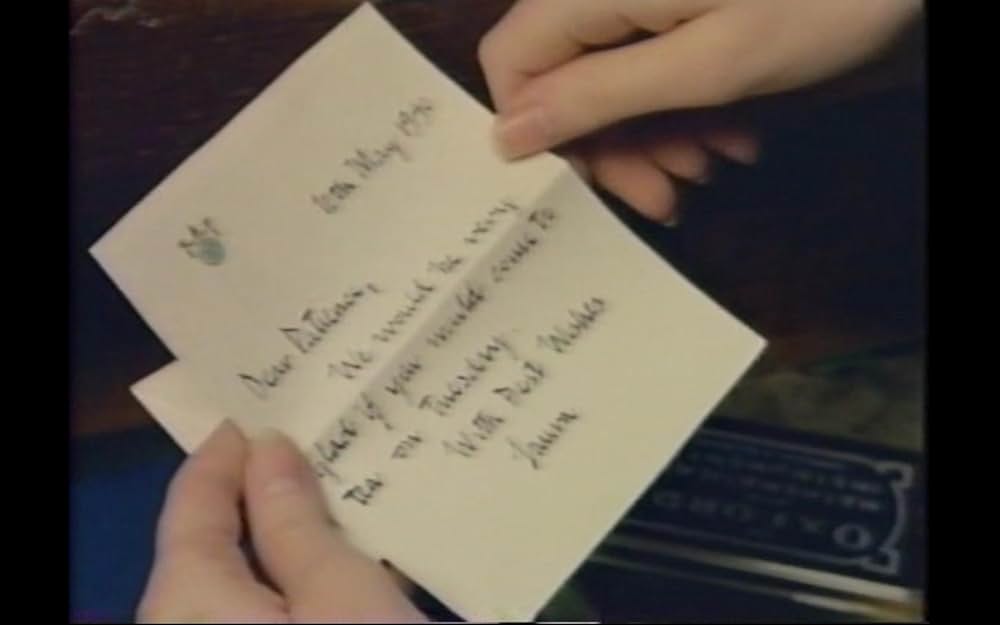 10th May 1930
Dear Patience,
We would be very
glad if you would come to
tea on Tuesday.
With Best Wishes
Laura
OXFORD